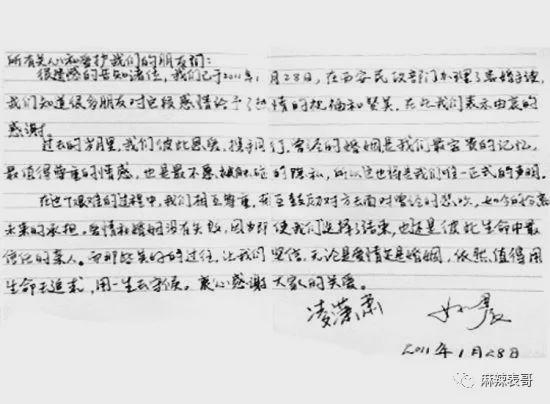 所有关心和爱护我们的朋友们：
很遗憾的告知诸位，我们已于2011年1月28日，在西安民政部门办理了离婚手续，
我们知道很多朋友对这段感情给予了热情的祝福和赞美，在此我们表示由衷的
感谢。
过去的岁月里，我们彼此恩爱，携手同行，曾经的婚姻是我们最宝贵的记忆，
最值得尊重的情感，也是最不愿被触碰的隐私，所以这也将是我们唯一正式的声明。
在这个艰难的过程中，我们相互尊重，努力去面对曾经的悲欢，如今的分离
未来的承担。爱情和婚姻没有失败，因为即使我们选择了结束，也还是彼此生命中最
信任的亲人。而那些美好的过往，让我们坚信，无论是爱情还是婚姻，依然值得用
生命去追求，用一生去守候。衷心感谢大家的关爱。
凌潇肃 姚晨
2011年1月28日
麻辣表哥